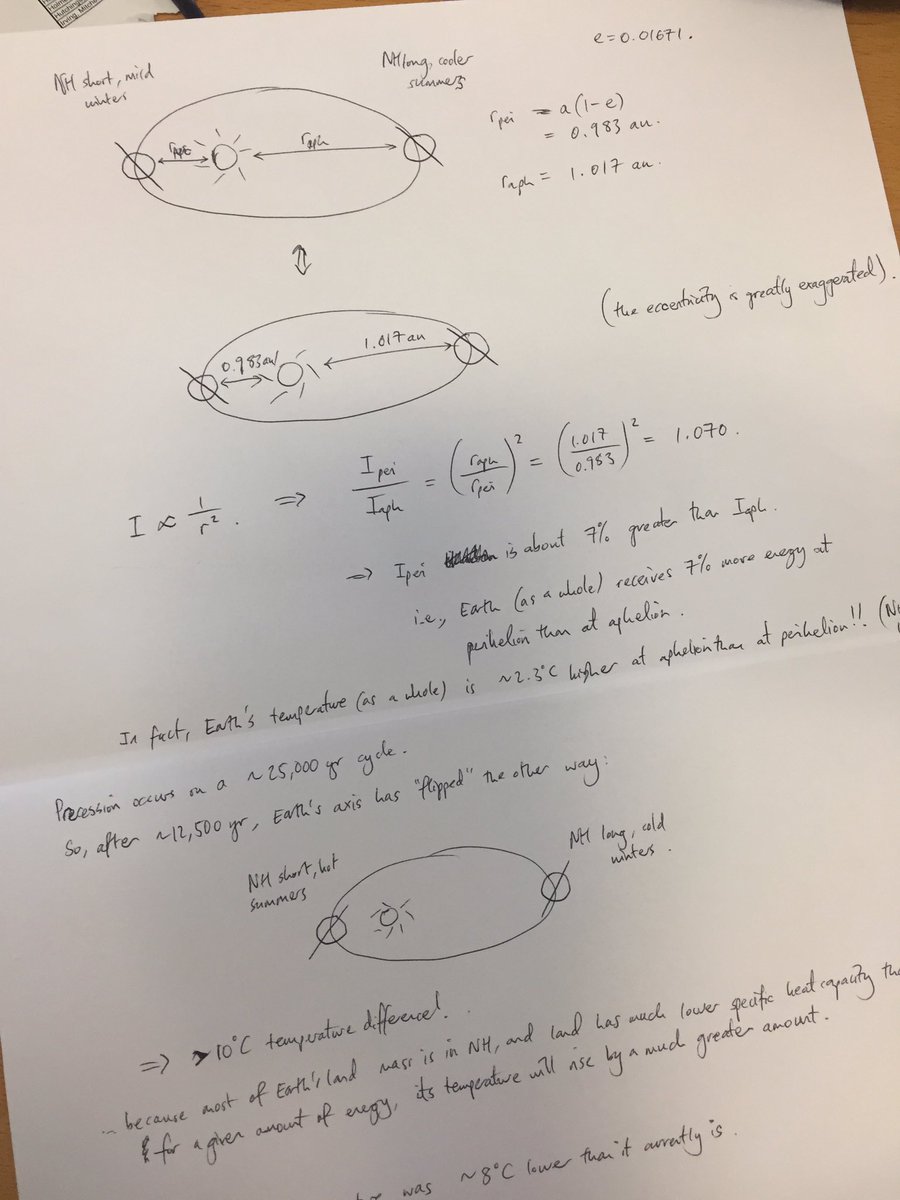 Hutching
Irving, Mitche
e = 0.01671.
NH short, mild
winters
NH long, cooler
summers
r_aph
r_pei = a(1-e)
= 0.983 au.
r_aph = 1.017 au.
(the eccentricity is greatly exaggerated).
0.983 au
1.017 au
I ∝ 1/r². ⇒ I_pei/I_aph = (r_aph/r_pei)² = (1.017/0.983)² = 1.070.
⇒ I_pei is about 7% greater than I_aph.
i.e., Earth (as a whole) receives 7% more energy at
perihelion than at aphelion.
In fact, Earth's temperature (as a whole) is ~2.3°C higher at aphelion than at perihelion!! (N
Precession occurs on a ~25,000 yr cycle.
So, after ~12,500 yr, Earth's axis has "flipped" the other way:
NH short, hot
summers
NH long, cold
winters.
⇒ >10°C temperature difference!
because most of Earth's land mass is in NH, and land has much lower specific heat capacity tha
& for a given amount of energy, its temperature will rise by a much greater amount.
was ~8°C lower than it currently is.